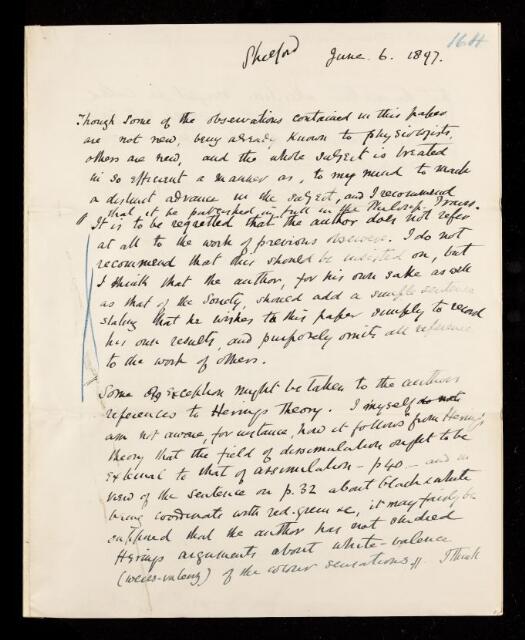 Shelford June. 6. 1897.
164
Though some of the observations contained in this paper
are not new, being already known to physiologists,
others are new, and the whole subject is treated
in so efficient a manner as, to my mind to mark
a distinct advance in the subject, and I recommend
that it be published in full in the Philosoph. Trans.
It is to be regretted that the author does not refer
at all to the work of previous observers. I do not
recommend that this should be insisted on, but
I think that the author, for his own sake as well
as that of the Society, should add a simple sentence
stating that he wishes in this paper simply to record
his own results, and purposely omits all reference
to the work of others.
Some exception might be taken to the authors
references to Herings Theory. I myself do not
am not aware, for instance, how it follows from Hering's
theory that the field of dissimulation ought to be
external to that of assimilation - p 40 - and in
view of the sentence on p. 32 about black & white
being coordinate with red-green &c, it may fairly be
supposed that the author has not studied
Herings arguments about white-valence
(weiss-valenz) of the colour sensations. I think